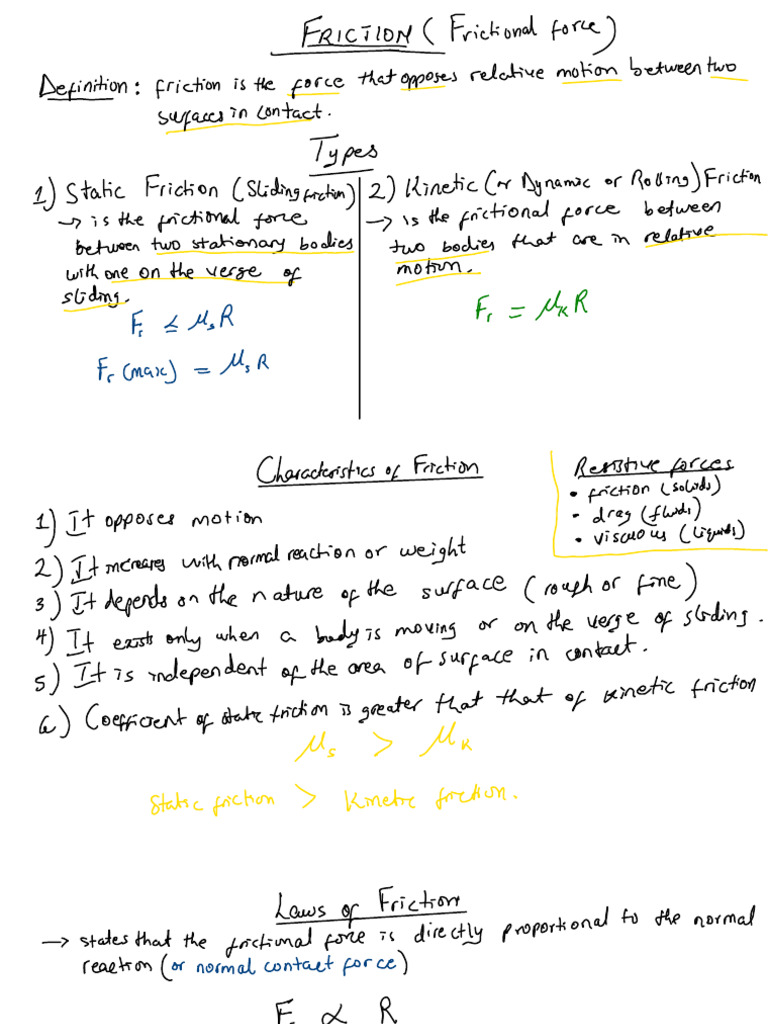 FRICTION (Frictional force)
Definition: friction is the force that opposes relative motion between two
surfaces in contact.
Types
1) Static Friction (Sliding friction)
→ is the frictional force
between two stationary bodies
with one on the verge of
sliding.
Fr ≤ μs R
Fr (max) = μs R
2) Kinetic (or Dynamic or Rolling) Friction
→ is the frictional force between
two bodies that are in relative
motion.
Fr = μK R
Characteristics of Friction
1) It opposes motion
2) It increases with normal reaction or weight
3) It depends on the nature of the surface (rough or fine)
4) It exists only when a body is moving or on the verge of sliding.
5) It is independent of the area of surface in contact.
6) Coefficient of static friction is greater that that of kinetic friction
μs > μK
Static friction > Kinetic friction.
Resistive forces
• friction (solids)
• drag (fluids)
• viscuous (liquids)
Laws of Friction
→ states that the frictional force is directly proportional to the normal
reaction (or normal contact force)
F ∝ R